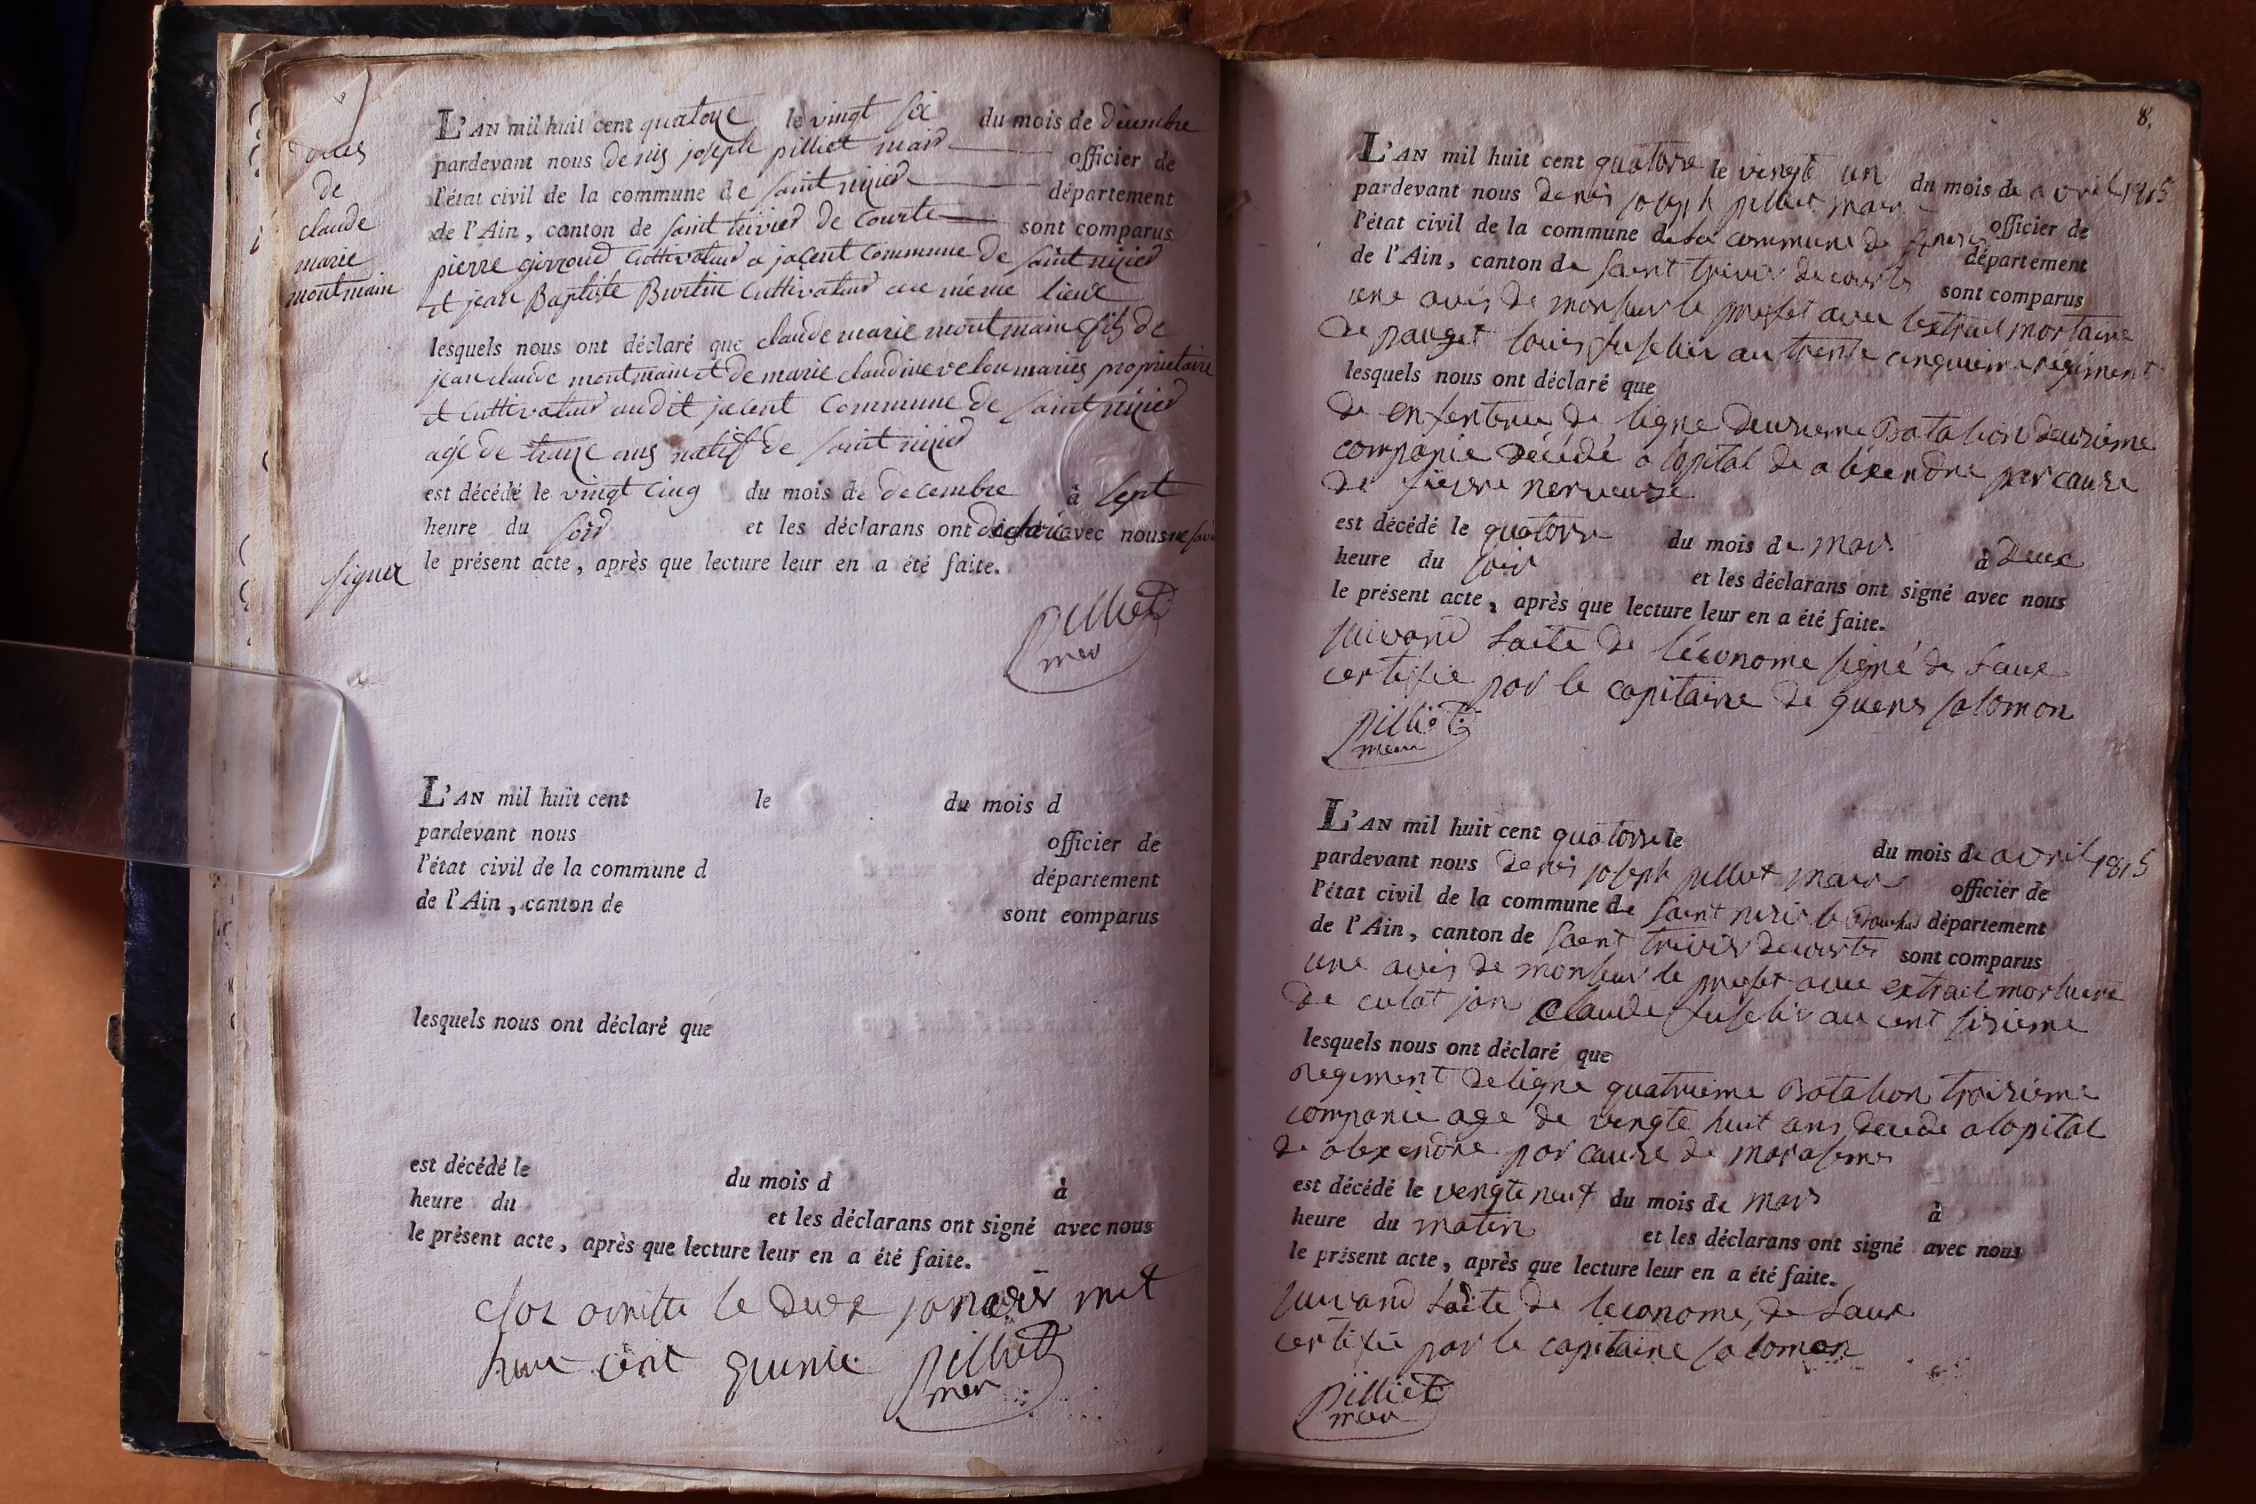 deces
de
claude
marie
montmain
L'AN mil huit cent quatorze le vingt six du mois de decembre
pardevant nous denis joseph pilliet maire officier de
l'état civil de la commune de saint nizier département
de l'Ain, canton de saint trivier de courte sont comparus
pierre girroud cultivateur a jacent commune de saint nizier
et jean Baptiste Burtin cultivateur au même lieux
lesquels nous ont déclaré que claude marie montmain fils de
jean claude montmain et de marie claudine velou mariés proprietaire
et cultivateur audit jacent commune de saint nizier
agé de ans natif de saint nizier
est décédé le vingt cinq du mois de decembre à sept
heure du soir et les déclarans ont déclaré avec nous ne savoir
signer le présent acte, après que lecture leur en a été faite.
pilliet
mer
L'AN mil huit cent le du mois d
pardevant nous officier de
l'état civil de la commune d département
de l'Ain, canton de sont comparus
lesquels nous ont déclaré que
est décédé le du mois d à
heure du et les déclarans ont signé avec nous
le présent acte, après que lecture leur en a été faite.
clos le deux janvier mil
huit cent quinze pilliet
mer
8.
L'AN mil huit cent quatorse le vingt un du mois de avril 1815
pardevant nous denis joseph pilliet maire officier de
l'état civil de la commune de la commune de département
de l'Ain, canton de saint trivier de courte sont comparus
une avis de monsieur le prefet avec lextrait mortaire
de pauget louis fuselier au trente cinquieme régiment
lesquels nous ont déclaré que
de enfenterie de ligne deuxieme Batalion deuxieme
companie décédé a lopital de alexendre par cause
de fievre nerveuse
est décédé le quatorse du mois de mars à deux
heure du soir et les déclarans ont signé avec nous
le présent acte, après que lecture leur en a été faite.
suivand lacte de léconome signé de Saux
certifie par le capitaine de guere salomon
pilliet
mer
L'AN mil huit cent quatorse le du mois de avril 1815
pardevant nous denis joseph pilliet maire officier de
l'état civil de la commune de saint nizie le Bouchoux département
de l'Ain, canton de saint trivier de courte sont comparus
une avis de monsieur le prefet avec extrait mortuere
de culat jan claude fuselier au cent sisieme
lesquels nous ont déclaré que
regiment de ligne quatrieme Batalion troisieme
companie age de vengte huit ans decede a lopital
de alexendre par cause de marasme
est décédé le vengte neuf du mois de mars à
heure du maten et les déclarans ont signé avec nous
le présent acte, après que lecture leur en a été faite.
suivand lacte de leconome, de Saux
certifie par le capitaine salomon
pilliet
mer